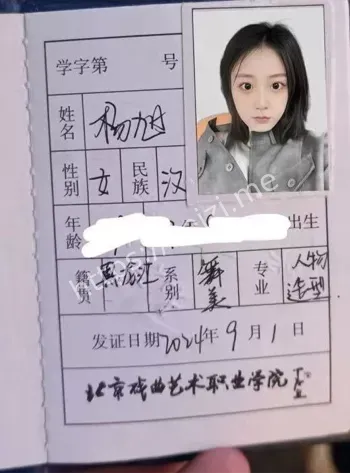 学字第 号
姓名 杨旭
性别 女 民族 汉
年龄 出生
籍贯 黑龙江 系别 舞美 专业 人物造型
发证日期 2024年9月1日
北京戏曲艺术职业学院